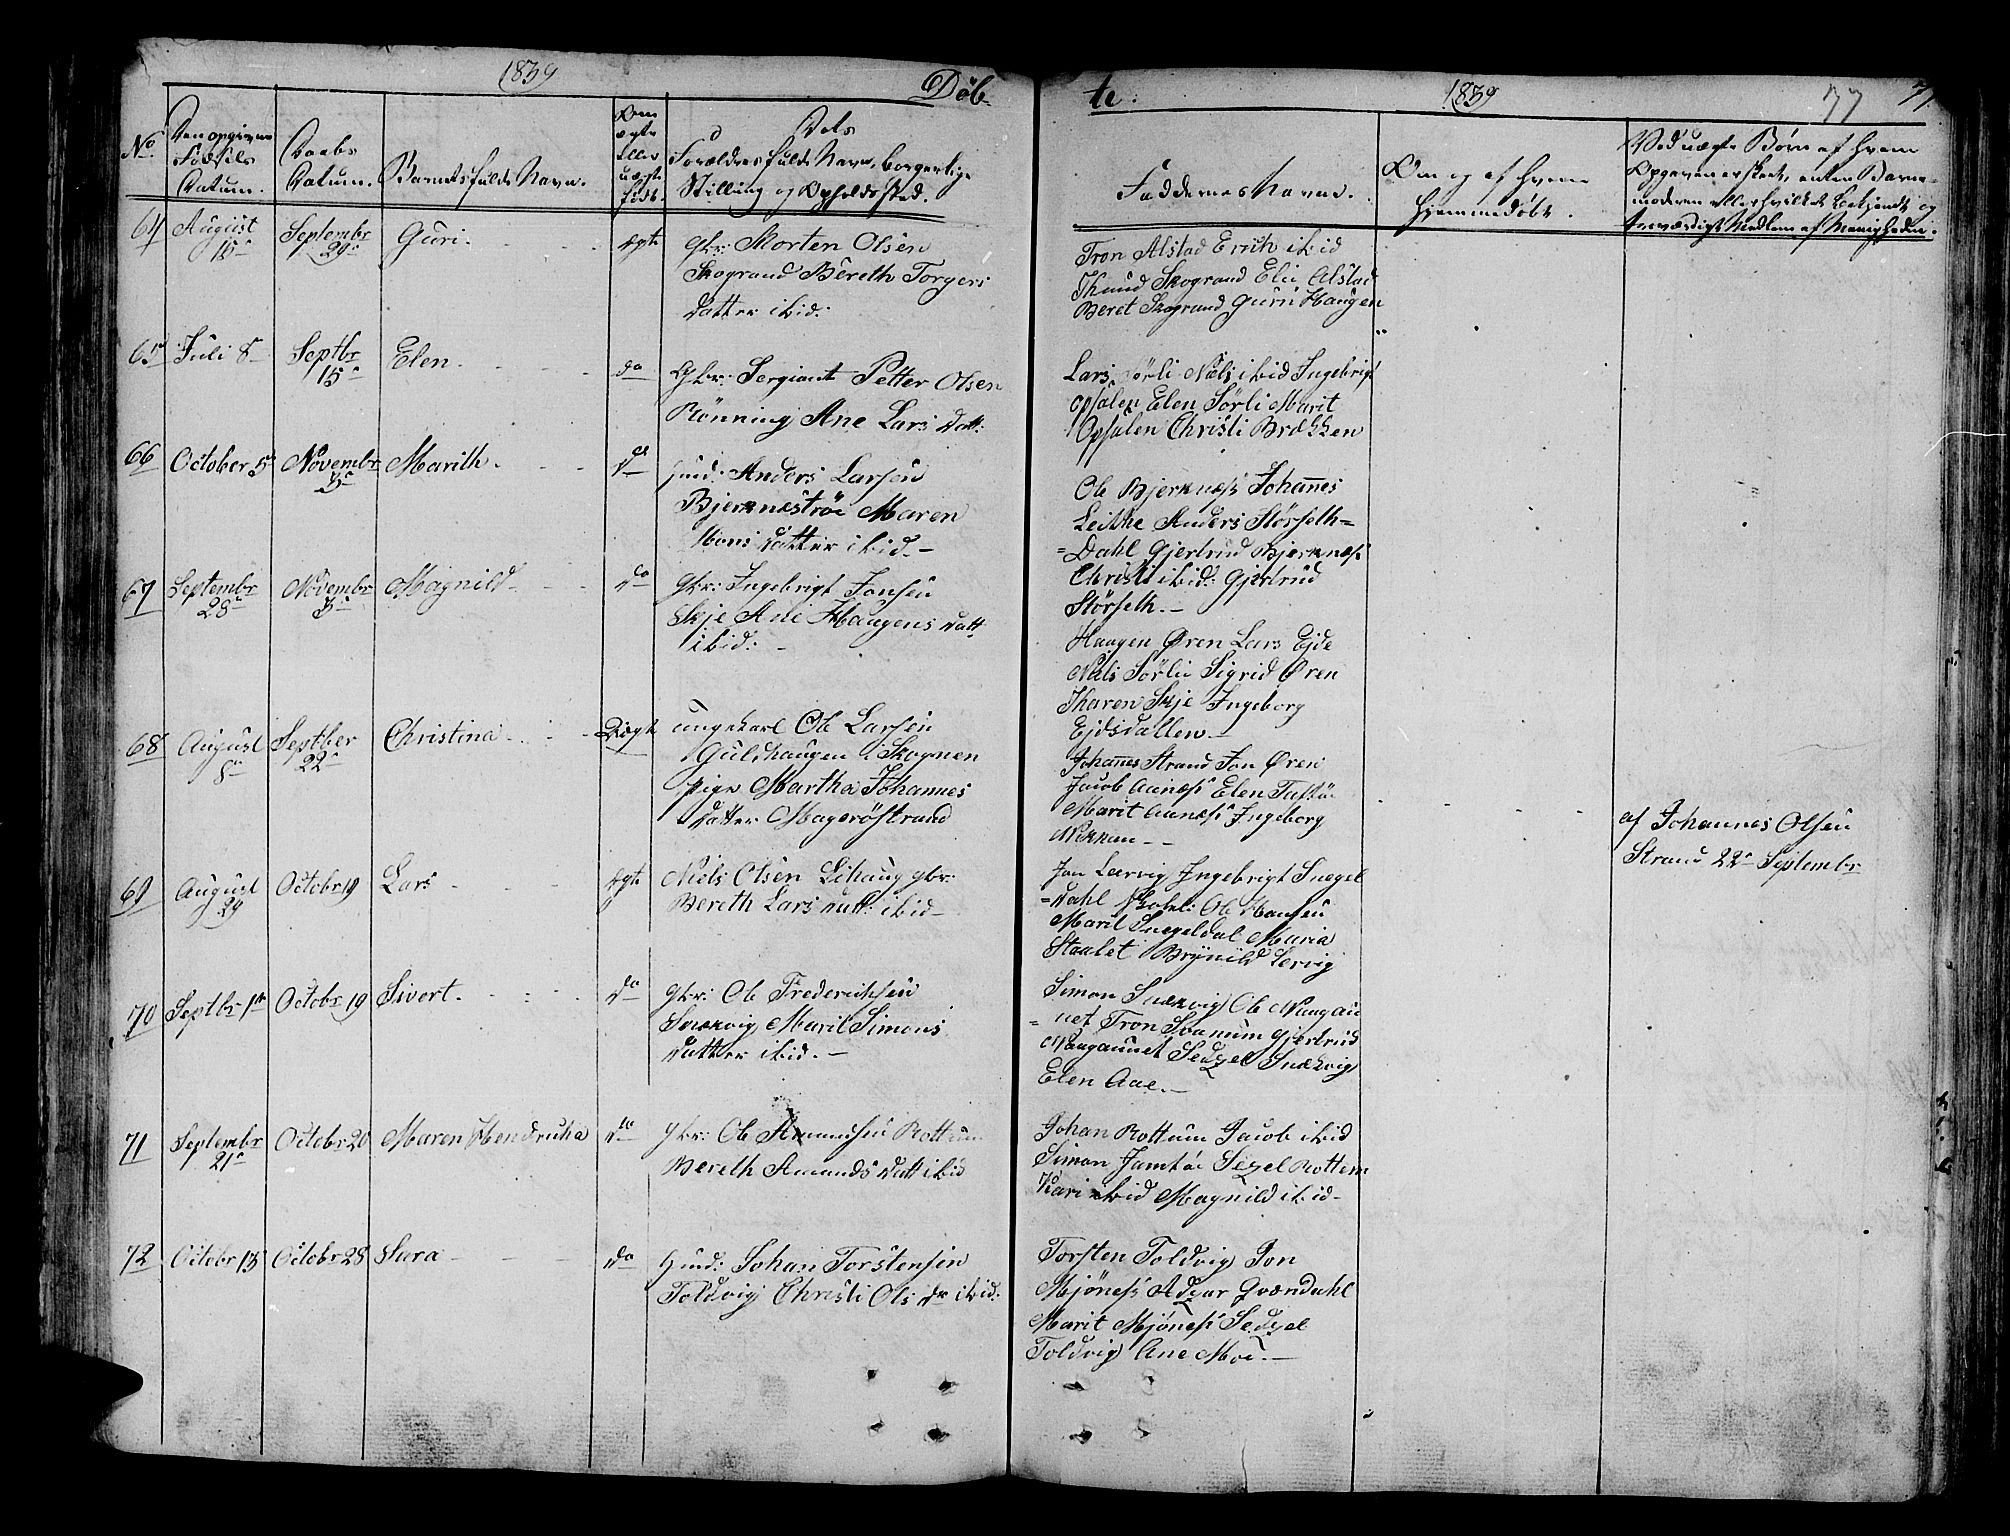 1839
Døb
te.
1839
77
No.
Den opgivne
Fødsels
Datum.
Daabs
Datum.
Barnets fulde Navn.
Om
ægte
eller
uægte
født.
Forældres fulde Navn, borgerlige
Stilling og Opholdssted.
Faddernes Navne.
Om og af hvem
hjemmedøbt.
Ved uægte Børn af hvem
Opgaven er skeet, enten Barne-
moderen eller hvilket bekjendt og
troværdigt Medlem af Menigheden.
64 August 15de Septembr 29de Guri. ægte gbr: Morten Olsen
Skogrand Bereth Torgers
Datter ibid:
Tron Alstad Erich ibid
Knud Skogrand Eli Alstad
Beret Skogrand Guri Haugen
65 Juli 8de Septbr 15de Elen. do Gbr: Sergiant Petter Olsen
Rønning Ane Lars Datt:
Lars Sørli Niels ibid Ingebrigt
Opsalen Elen Sørli Marit
Opsalen Christi Brækken
66 October 5te Novembr 3de Marith. do huusmd: Anders Larsen
Bjerknæstrøe Maren
Mons Datter ibid. -
Ole Bjerknæss Johannes
Leithe Anders Størseth=
=Dahl Gjertrud Bjerknæss
Christi ibid: Gjertrud
Størseth. -
67 Septembr 28de Novembr 3de Magnild. do gbr: Ingebrigt Jonsen
Skje Ane Haagens Datt:
ibid: -
Haagen Øren Lars Ejde
Niels Sørli Sigrid Øren
Karen Skje Ingeborg
Ejdsdallen. -
68 August 8de Septber 22de Christina. Uægte ungkarl Ole Larsen
Guldhaugen i Skognen
pige Martha Johannes
Datter Magerøstrand
Johannes Strand Jon Øren
Jacob Aunæss Elen
Marit Aunæss Ingeborg
af Johannes Olsen
Strand 22de Septembr
69 August 29 Octobr 19 Lars ægte Niels Olsen Lihaug gbr:
Bereth Lars Datt: ibid -
Jon Lervig Ingebrigt Snegel
=Dahl Ole Hansen
Marit Snegeldal Maria
Staalet Brynild Lervig
70 Septbr 1ste Octobr 19 Sivert. do gbr: Ole Frederichsen
Snekvig Marit Simons
Datter ibid. -
Simon Snekvig Ole Naugau
=net Tron Svanum Gjertrud
Naugaunet Sedzel Snekvig
Elen Aae. -
71 Septembr 21de Octobr 20 Maren Hendricha do gbr: Ole Amundsen Rottum
Bereth Amunds Datt ibid
Johan Rottum Jacob ibid
Simon Jamtøe Sezel Rottem
Kari ibid Magnild ibid -
72 Octobr 13 Octobr 28 Sara do huusmd: Johan Torstensen
Toldvig Christi Ols Dr ibid:
Torsten Toldvig Jon
Mjøness Adzer Qvændahl
Marit Mjøness Sedzel
Toldvig Ane Moe. -